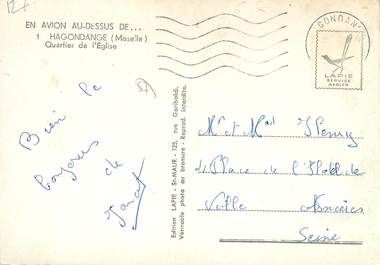 126
EN AVION AU-DESSUS DE...
1 HAGONDANGE (Moselle)
Quartier de l'Église
LAPIE
SERVICE
AÉRIEN
Edition LAPIE - St-MAUR - 125, rue Garibaldi,
Véritable photo au bromure - Reprod. interdite.
Bien
de
Mr et Mad
Place de l'Hotel de
Ville Asnières
Seine